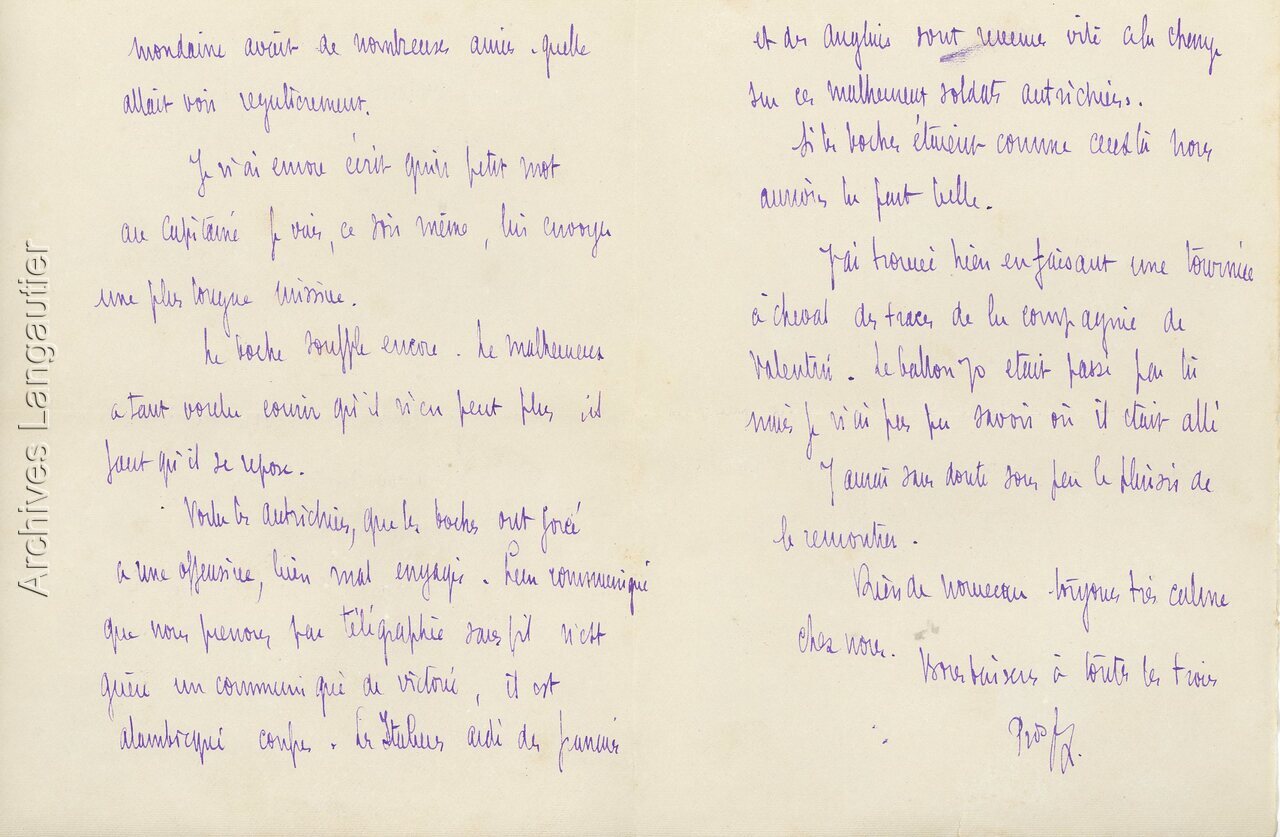 mondaine avait de nombreuses amies quelle
allait voir regulierement.
Je n'ai encore écrit qu'un petit mot
au Capitaine Je vais, ce soir même, lui envoyer
une plus longue missive.
Le boche souffle encore. Le malheureux
a tant voulu courir qu'il n'en peut plus il
faut qu'il se repose.
Voila les autrichiens, que les boches ont forcé
a une offensive, bien mal engagés. Leur communiqué
que nous prenons par télégraphie sans fil n'est
guère un communiqué de victoire, il est
alambiqué confus. Les Italiens aidé des français
et des Anglais sont revenus vite a la charge
sur ces malheureux soldats autrichiens.
Si les boches étaient comme ceux là nous
aurions la part belle.
J'ai trouvé hier en faisant une tournée
à cheval des traces de la compagnie de
Valentin. Le ballon 70 etait passé par là
mais je n'ai pas pu savoir où il était allé
J'aurai sans doute sous peu le plaisir de
le rencontrer.
Rien de nouveau toujours très calme
chez nous.
Bons baisers à toutes les trois
Archives Langautier